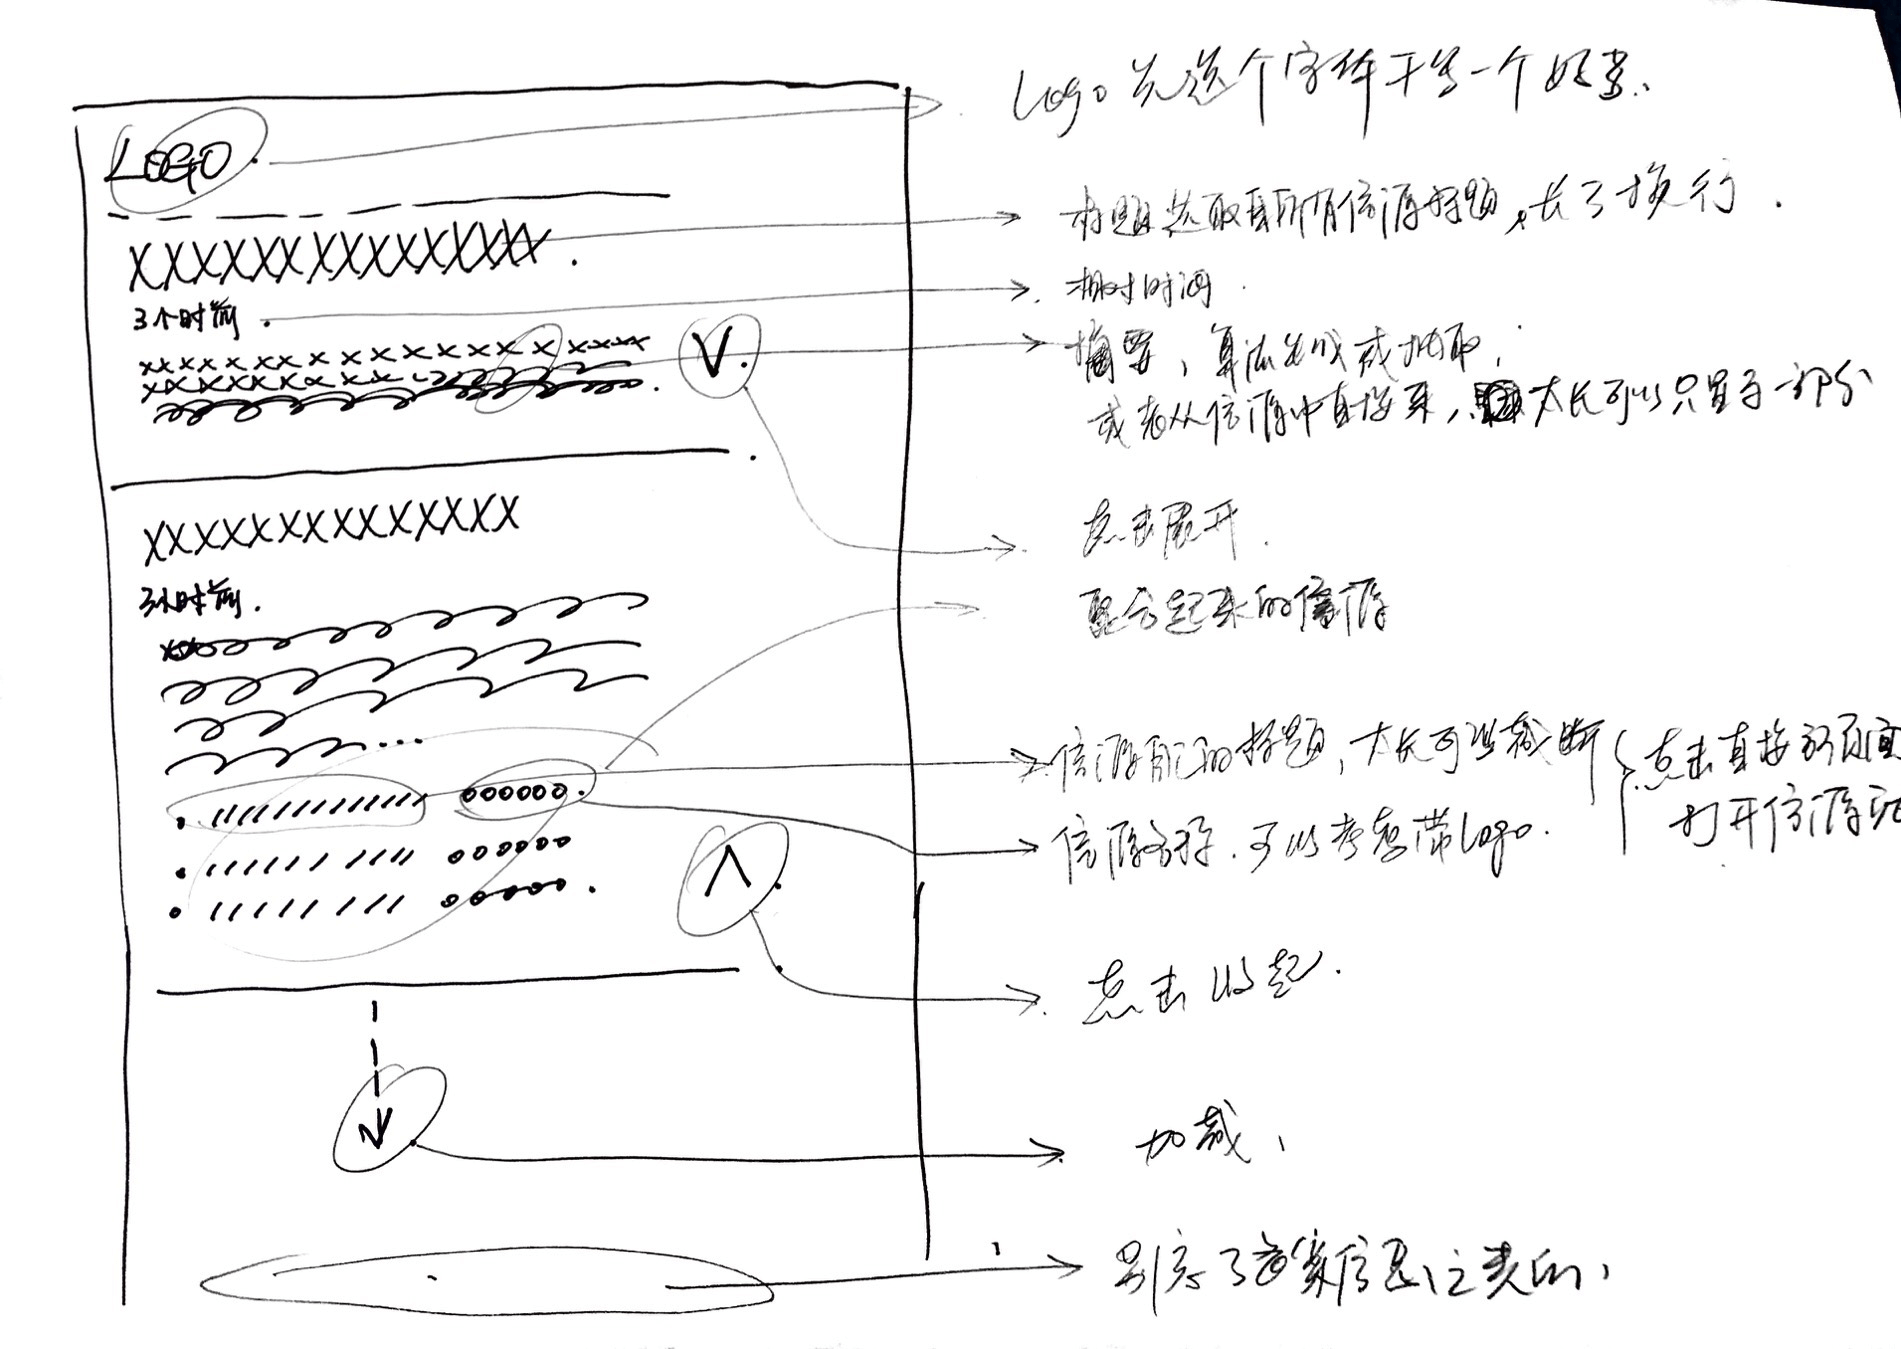 LOGO
Logo 先选个字体干当一个好弄.
XXXXXXXXXXXXXXX.
标题选取自所有信源标题,长了换行.
3个时前.
相对时间.
xxxxxxxxxxxxxxxxx
摘要,算法生成或抽取,
或者从信源中直接来,太长可以只显示一部分
V
XXXXXXXXXXXXXX
点击展开.
3小时前.
聚合起来的信源
...
信源自己的标题,太长可以截断
点击直接新页面
打开信源
oooooo
信源名称.可以考虑带Logo.
oooooo
oooooo
点击收起.
加载,
别忘了备案信息之类的,